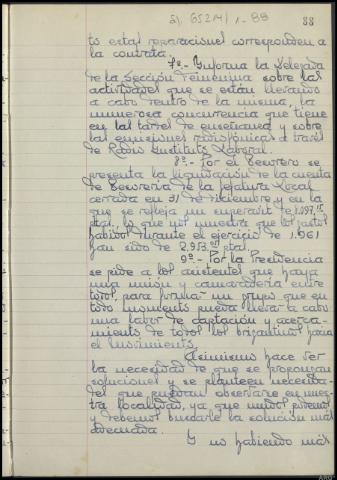 88
to estas reparaciones corresponden a
la contrata.
7º.- Informa la Delegada
de la Sección Femenina sobre las
actividades que se están llevando
a cabo dentro de la misma, la
numerosa concurrencia que tiene
en las tardes de enseñanza y sobre
las emisiones radiofónicas a través
de Radio Instituto Laboral.
8º.- Por el Tesorero se
presenta la liquidación de la cuenta
de Tesorería de la Jefatura Local
cerrada en 31 de diciembre y en la
que se refleja un superavit de
ptas, lo que nos muestra que los gastos
habidos durante el ejercicio de 1.961
han sido de ptas.
9º.- Por la Presidencia
se pide a los asistentes que haya
una unión y camaradería entre
todos, para formar un grupo que en
todo momento pueda llevar a cabo
una labor de captación y acerca-
miento de todos los brigantinos hacia
el Movimiento.
Asimismo hace ver
la necesidad de que se propongan
soluciones y se planteen necesida-
des que puedan observarse en nues-
tra localidad, ya que juntos podemos
y debemos buscarle la solución más
adecuada.
Y no habiendo más